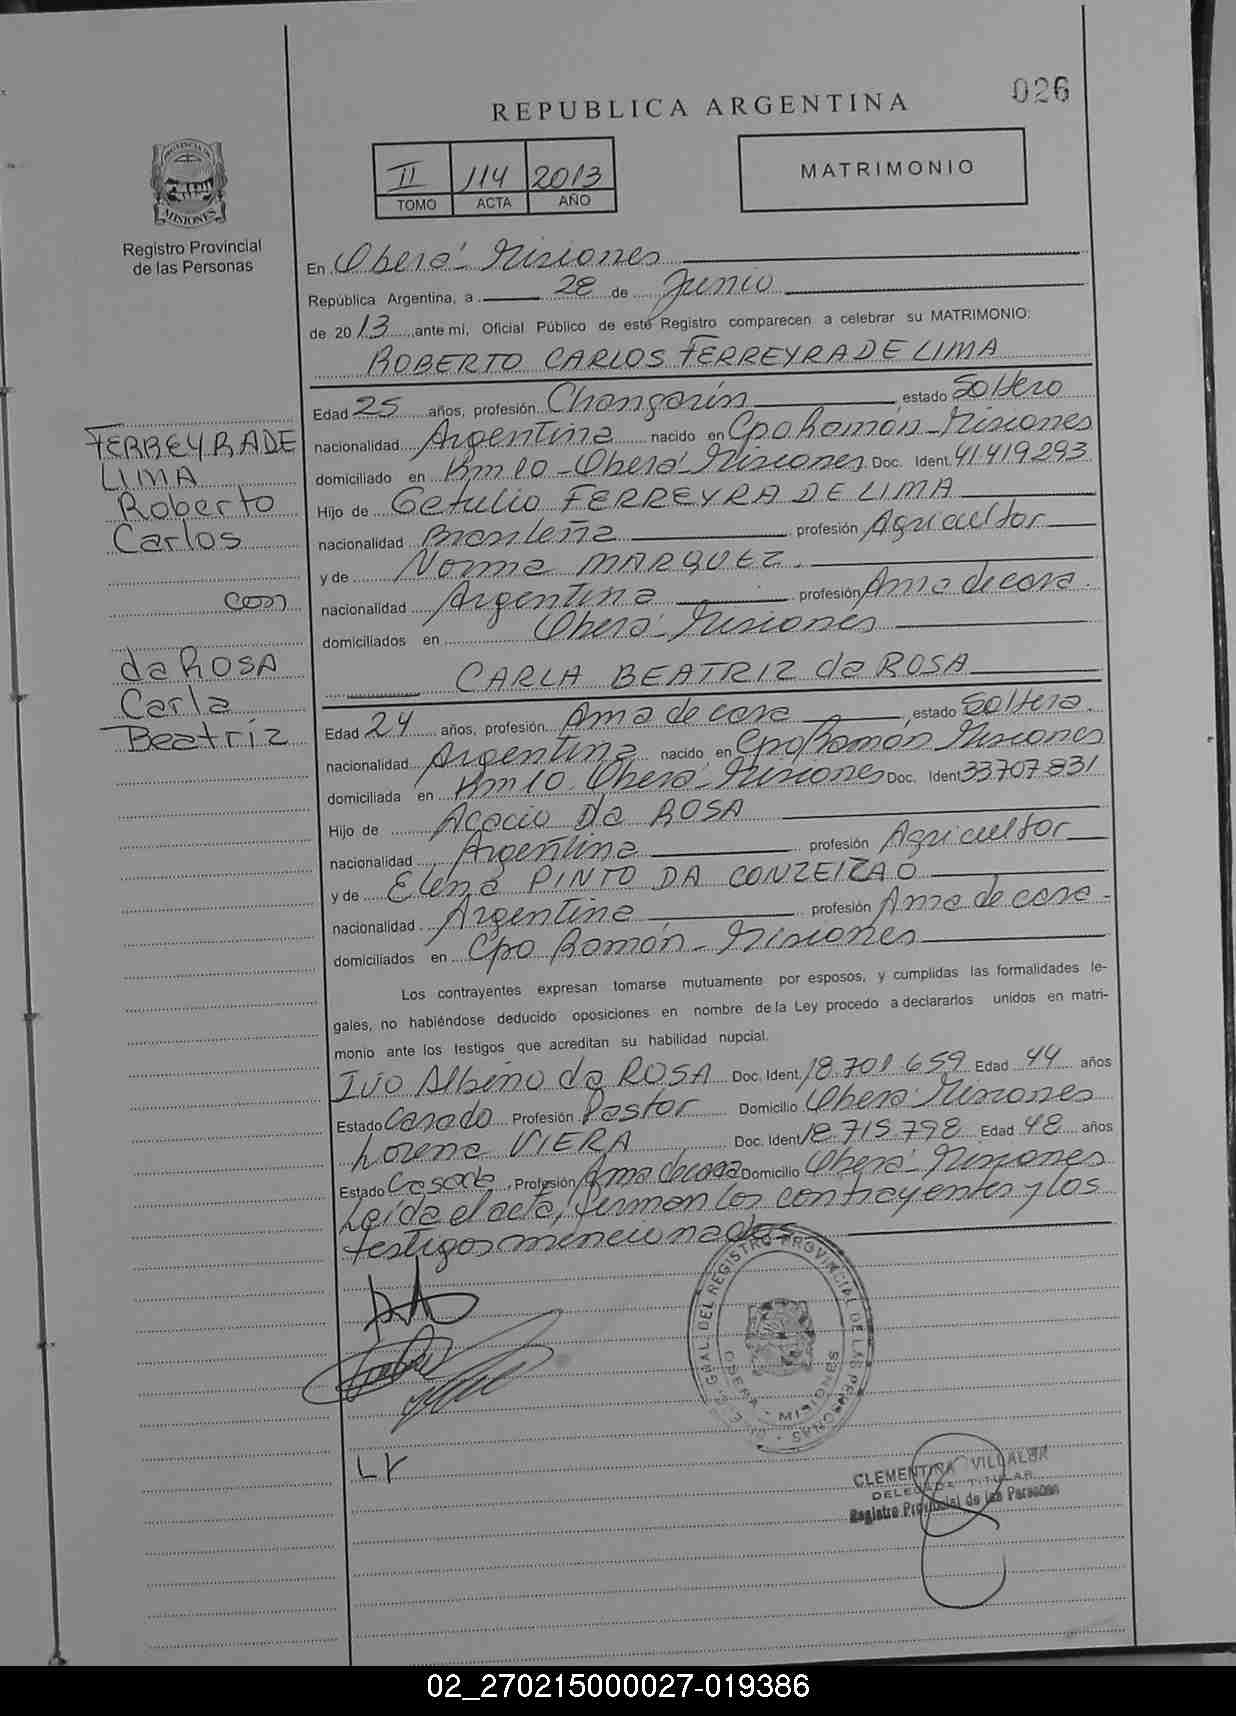 026
REPUBLICA ARGENTINA
II 114 2013
TOMO ACTA AÑO
MATRIMONIO
MISIONES
Registro Provincial
de las Personas
En Oberá - Misiones
República Argentina, a 28 de Junio
de 2013 ante mi, Oficial Público de este Registro comparecen a celebrar su MATRIMONIO:
ROBERTO CARLOS FERREYRA DE LIMA
Edad 25 años, profesión Changarín, estado Soltero
nacionalidad Argentina nacido en Cpo Ramón - Misiones
domiciliado en Km 10 - Oberá - Misiones Doc. Ident. 41419293
Hijo de Getulio FERREYRA DE LIMA
nacionalidad Brasileña profesión Agricultor
y de Norma MARQUEZ.
nacionalidad Argentina profesión Ama de casa.
domiciliados en Oberá - Misiones
FERREYRA DE
LIMA
Roberto
Carlos
con
da ROSA
Carla
Beatríz
CARLA BEATRIZ da ROSA
Edad 24 años, profesión Ama de casa, estado Soltera.
nacionalidad Argentina nacido en Cpo Ramón Misiones
domiciliada en Km 10. Oberá - Misiones Doc. Ident 33707831
Hijo de Acacio Da ROSA
nacionalidad Argentina profesión Agricultor
y de Elena PINTO DA CONZEIZAO
nacionalidad Argentina profesión Ama de casa -
domiciliados en Cpo Ramón - Misiones
Los contrayentes expresan tomarse mutuamente por esposos, y cumplidas las formalidades le-
gales, no habiéndose deducido oposiciones en nombre de la Ley procedo a declararlos unidos en matri-
monio ante los testigos que acreditan su habilidad nupcial.
Ivo Albino da ROSA Doc. Ident. 18.701.659 Edad 44 años
Estado Casado Profesión Pastor Domicilio Oberá - Misiones
Lorena VIERA Doc. Ident 18.715.798 Edad 48 años
Estado Casada, Profesión Ama de casa Domicilio Oberá - Misiones
Leída el acta, firman los contrayentes y los
testigos mencionados.
GRAL. DEL REGISTRO PROVINCIAL DE LAS PERSONAS
OBERA - MISIONES
LV
CLEMENTINA VILLALBA
DELEGADE TITULAR
Registro Provincial de las Personas
02_270215000027-019386